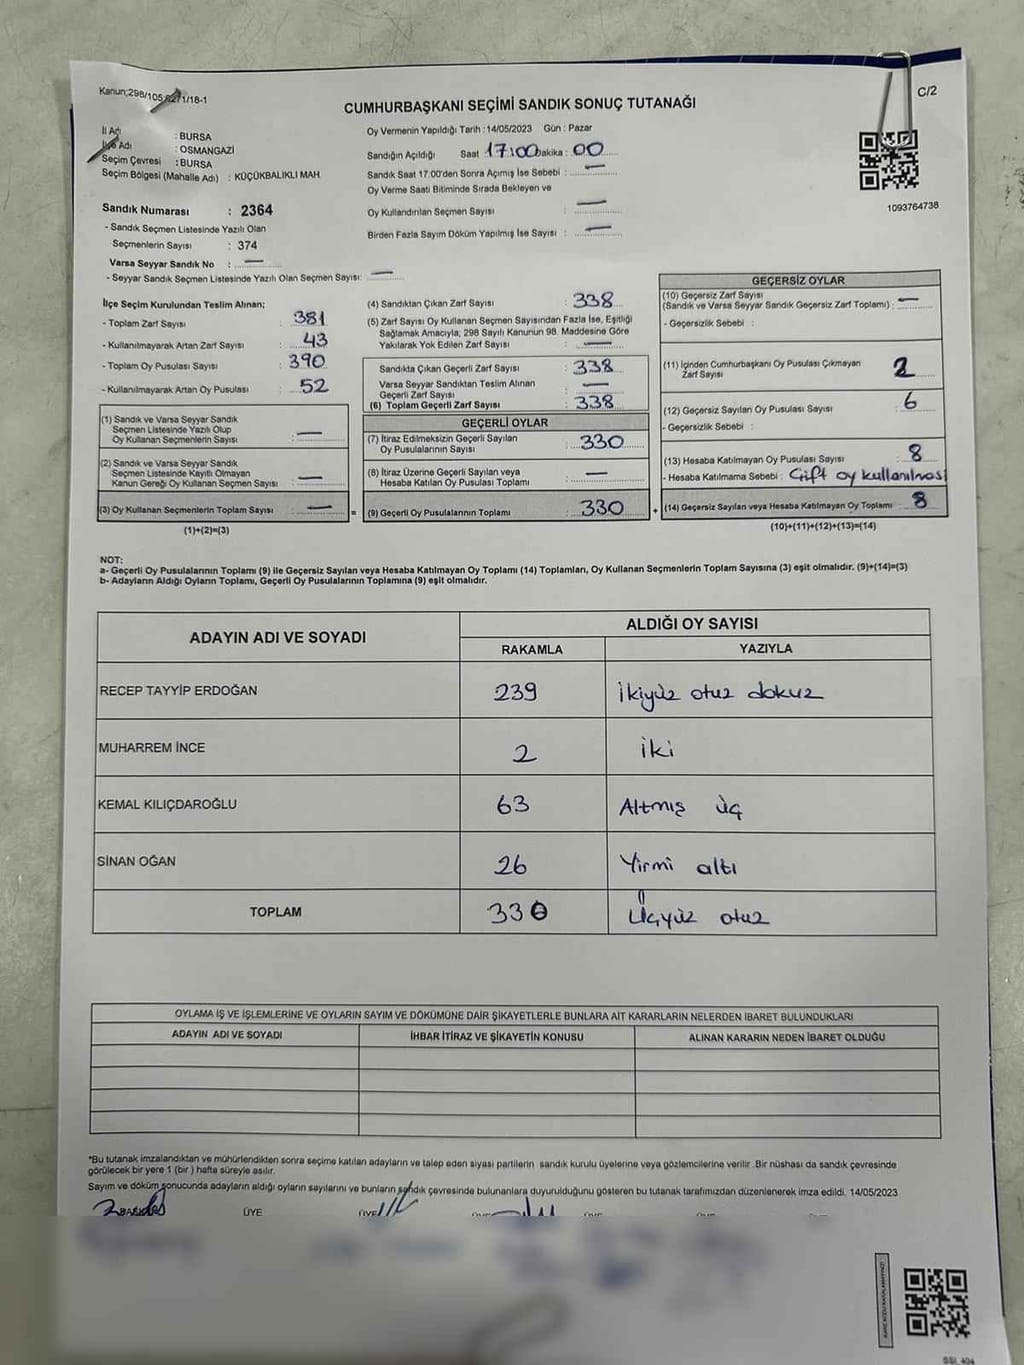 Kanun;298/105-6271/18-1
C/2
CUMHURBAŞKANI SEÇİMİ SANDIK SONUÇ TUTANAĞI
İl Adı : BURSA
İlçe Adı : OSMANGAZİ
Seçim Çevresi : BURSA
Seçim Bölgesi (Mahalle Adı) : KÜÇÜKBALIKLI MAH
Oy Vermenin Yapıldığı Tarih : 14/05/2023 Gün : Pazar
Sandığın Açıldığı Saat 17:00 Dakika : 00
Sandık Saat 17:00'den Sonra Açımış İse Sebebi : —
Oy Verme Saati Bitiminde Sırada Bekleyen ve
Oy Kullandırılan Seçmen Sayısı : —
Birden Fazla Sayım Döküm Yapılmış İse Sayısı : —
1093764738
Sandık Numarası : 2364
- Sandık Seçmen Listesinde Yazılı Olan
Seçmenlerin Sayısı : 374
Varsa Seyyar Sandık No : —
- Seyyar Sandık Seçmen Listesinde Yazılı Olan Seçmen Sayısı: —
İlçe Seçim Kurulundan Teslim Alınan;
- Toplam Zarf Sayısı : 381
- Kullanılmayarak Artan Zarf Sayısı : 43
- Toplam Oy Pusulası Sayısı : 390
- Kullanılmayarak Artan Oy Pusulası : 52
(1) Sandık ve Varsa Seyyar Sandık
Seçmen Listesinde Yazılı Olup
Oy Kullanan Seçmenlerin Sayısı : —
(2) Sandık ve Varsa Seyyar Sandık
Seçmen Listesinde Kayıtlı Olmayan
Kanun Gereği Oy Kullanan Seçmen Sayısı : —
(3) Oy Kullanan Seçmenlerin Toplam Sayısı : —
(1)+(2)=(3)
(4) Sandıktan Çıkan Zarf Sayısı : 338
(5) Zarf Sayısı Oy Kullanan Seçmen Sayısından Fazla İse, Eşitliği
Sağlamak Amacıyla; 298 Sayılı Kanunun 98. Maddesine Göre
Yakılarak Yok Edilen Zarf Sayısı : —
Sandıkta Çıkan Geçerli Zarf Sayısı : 338
Varsa Seyyar Sandıktan Teslim Alınan
Geçerli Zarf Sayısı : —
(6) Toplam Geçerli Zarf Sayısı : 338
GEÇERLİ OYLAR
(7) İtiraz Edilmeksizin Geçerli Sayılan
Oy Pusulalarının Sayısı : 330
(8) İtiraz Üzerine Geçerli Sayılan veya
Hesaba Katılan Oy Pusulası Toplamı : —
= (9) Geçerli Oy Pusulalarının Toplamı : 330 +
GEÇERSİZ OYLAR
(10) Geçersiz Zarf Sayısı
(Sandık ve Varsa Seyyar Sandık Geçersiz Zarf Toplamı) : —
- Geçersizlik Sebebi :
(11) İçinden Cumhurbaşkanı Oy Pusulası Çıkmayan
Zarf Sayısı : 2
(12) Geçersiz Sayılan Oy Pusulası Sayısı : 6
- Geçersizlik Sebebi :
(13) Hesaba Katılmayan Oy Pusulası Sayısı : 8
- Hesaba Katılmama Sebebi : Çift oy kullanılması
(14) Geçersiz Sayılan veya Hesaba Katılmayan Oy Toplamı : 8
(10)+(11)+(12)+(13)=(14)
NOT:
a- Geçerli Oy Pusulalarının Toplamı (9) ile Geçersiz Sayılan veya Hesaba Katılmayan Oy Toplamı (14) Toplamları, Oy Kullanan Seçmenlerin Toplam Sayısına (3) eşit olmalıdır. (9)+(14)=(3)
b- Adayların Aldığı Oyların Toplamı, Geçerli Oy Pusulalarının Toplamına (9) eşit olmalıdır.
ADAYIN ADI VE SOYADI
ALDIĞI OY SAYISI
RAKAMLA YAZIYLA
RECEP TAYYİP ERDOĞAN 239 ikiyüz otuz dokuz
MUHARREM İNCE 2 iki
KEMAL KILIÇDAROĞLU 63 Altmış üç
SİNAN OĞAN 26 Yirmi altı
TOPLAM 330 Üçyüz otuz
OYLAMA İŞ VE İŞLEMLERİNE VE OYLARIN SAYIM VE DÖKÜMÜNE DAİR ŞİKAYETLERLE BUNLARA AİT KARARLARIN NELERDEN İBARET BULUNDUKLARI
ADAYIN ADI VE SOYADI İHBAR İTİRAZ VE ŞİKAYETİN KONUSU ALINAN KARARIN NEDEN İBARET OLDUĞU
*Bu tutanak imzalandıktan ve mühürlendikten sonra seçime katılan adayların ve talep eden siyasi partilerin sandık kurulu üyelerine veya gözlemcilerine verilir .Bir nüshası da sandık çevresinde
görülecek bir yere 1 (bir ) hafta süreyle asılır.
Sayım ve döküm sonucunda adayların aldığı oyların sayılarını ve bunların sandık çevresinde bulunanlara duyurulduğunu gösteren bu tutanak tarafımızdan düzenlenerek imza edildi. 14/05/2023
BAŞKAN ÜYE ÜYE ÜYE ÜYE